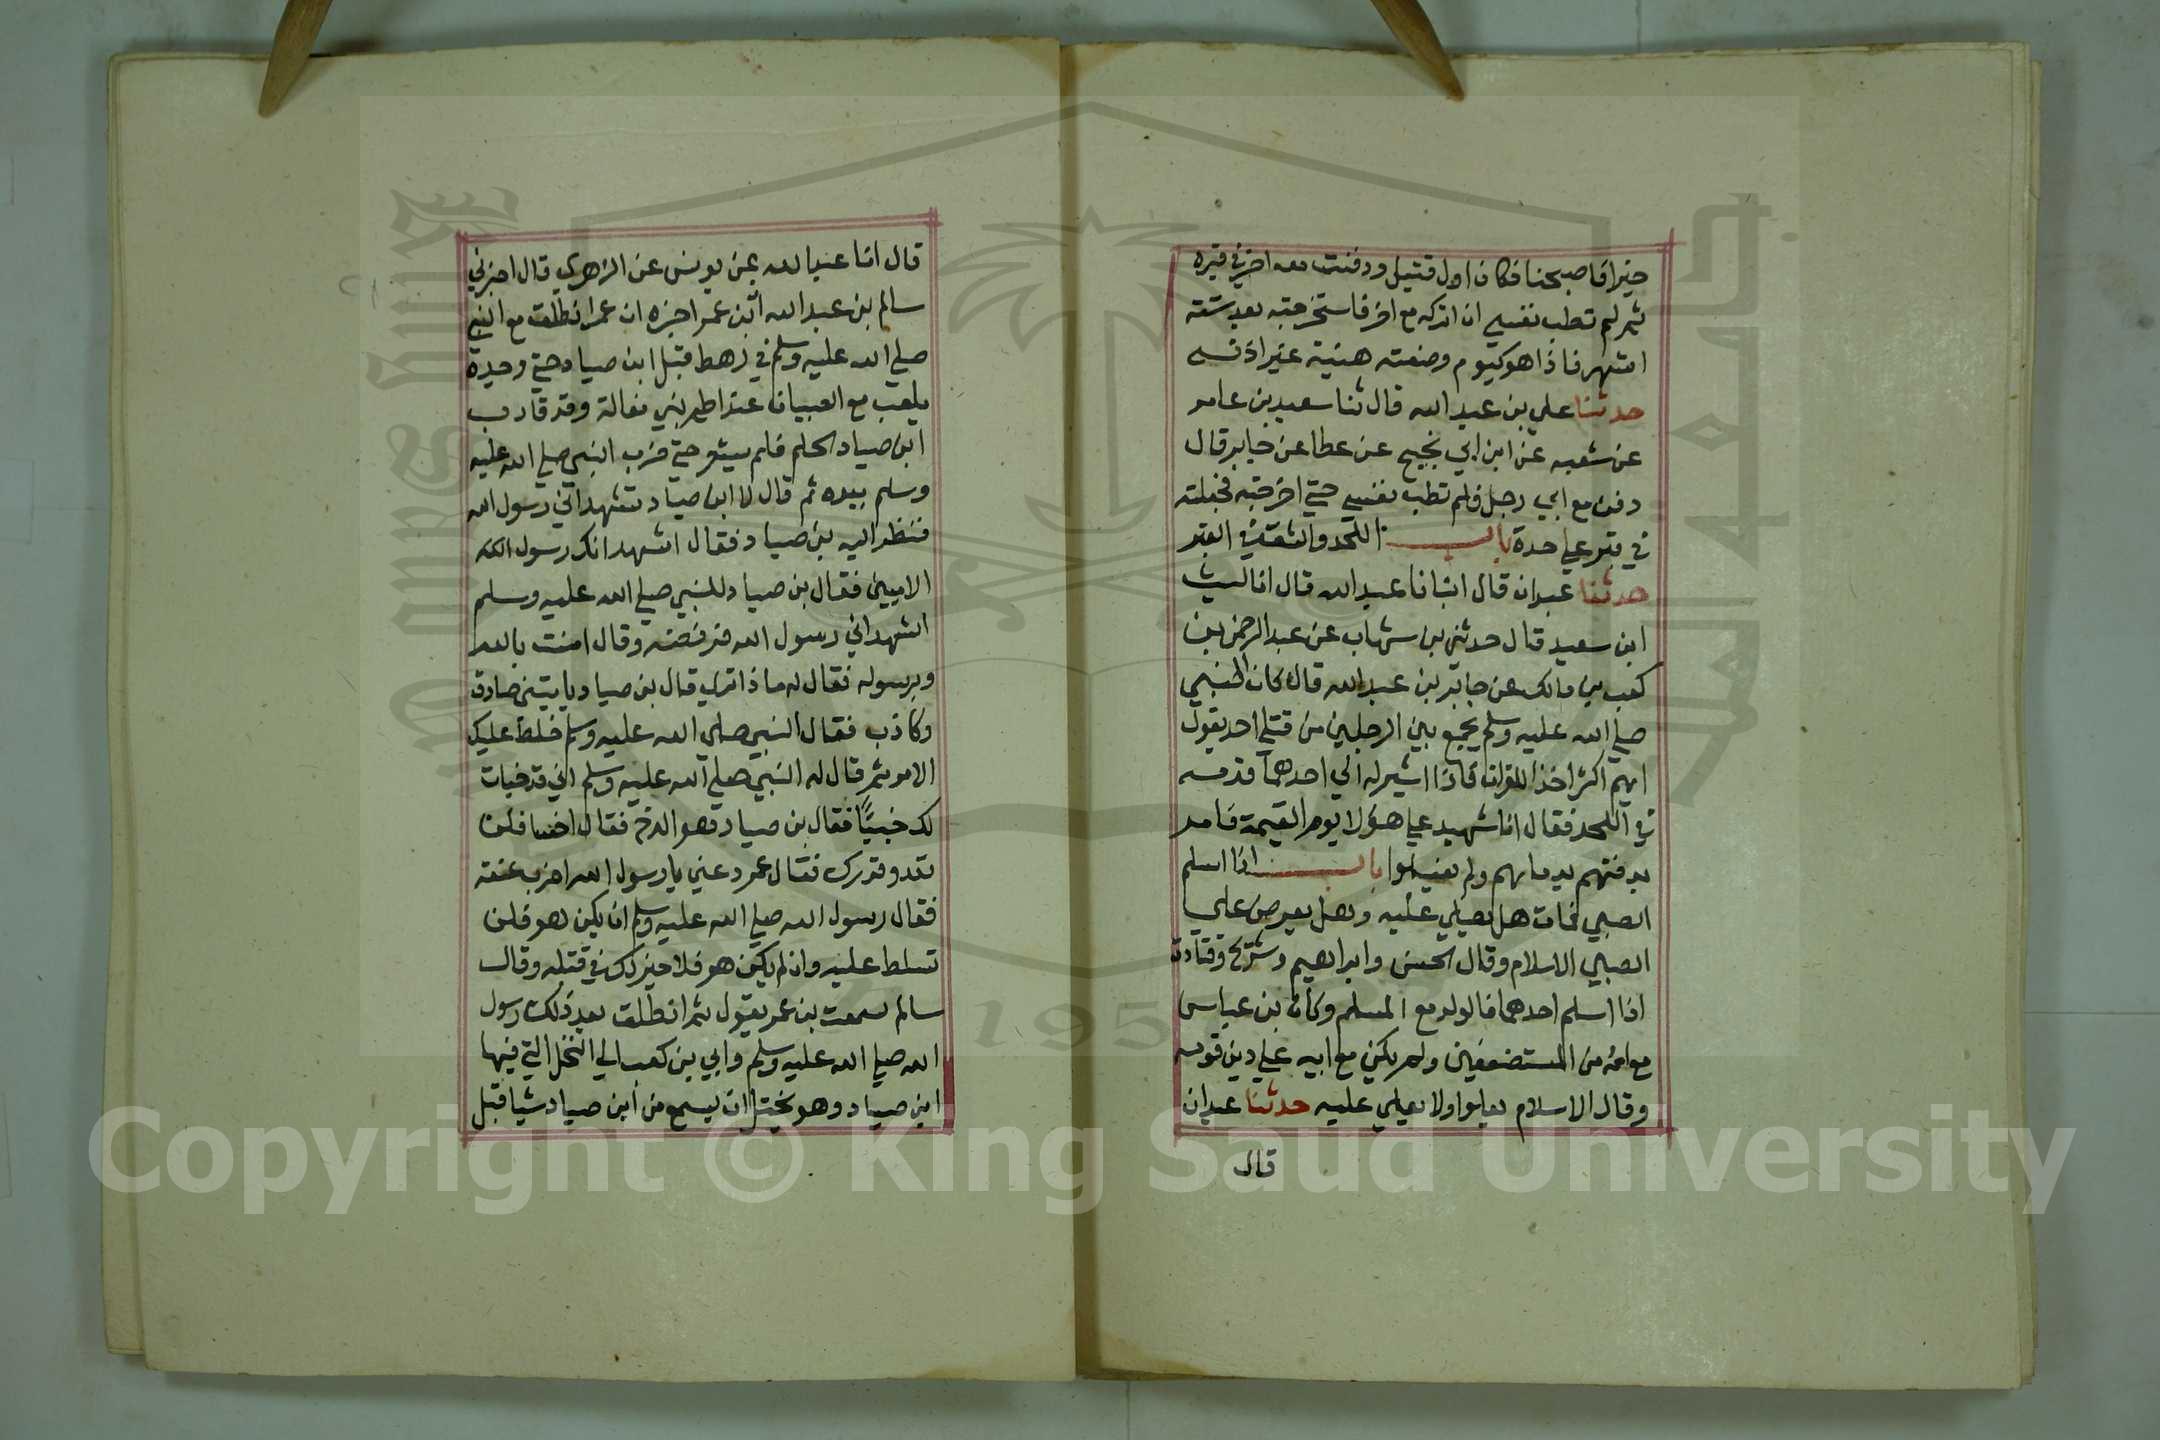 خيرا فاصبحنا فكان اول قتيل ودفنت معه اخر في قبره
ثم لم تطب نفسي ان اتركه مع اخر فاستخرجته بعد ستة
اشهر فاذا هو كيوم وضعته هنية غير اذنه
حدثنا علي بن عبد الله قال ثنا سعيد بن عامر
عن شعبه عن ابن ابي نجيح عن عطا عن جابر قال
دفن مع ابي رجل فلم تطب نفسي حتي اخرجته فجعلته
في قبر علي حدة باب اللحد والشق في القبر
حدثنا عبدان قال انبانا عبد الله قال انا ليث
ابن سعيد قال حدثني بن شهاب عن عبد الرحمن بن
كعب بن مالك عن جابر بن عبد الله قال كان النبي
صلي الله عليه وسلم يجمع بين الرجلين من قتلي احد يقول
ايهم اكثر اخذا للقران فاذا اشير له الي احدهما قدمه
في اللحد فقال انا شهيد علي هؤلا يوم القيمة فامر
بدفنهم بدمايهم ولم يغسلوا باب اذا اسلم
الصبي فمات هل يصلي عليه وهل يعرض علي
الصبي الاسلام وقال الحسن وابراهيم وشريح وقتادة
اذا اسلم احدهما فالولد مع المسلم وكان بن عباس
مع امه من المستضعفين ولم يكن مع ابيه علي دين قومه
وقال الاسلام يعلوا ولا يعلي عليه حدثنا عبدان
قال
قال انا عبد الله عن يونس عن الزهري قال اخبرني
سالم بن عبد الله ان بن عمر اخبره ان عمر انطلق مع النبي
صلي الله عليه وسلم في رهط قبل ابن صياد حتي وجدة
يلعب مع الصبيان عند اطم بني مغالة وقد قارب
ابن صياد الحلم فلم يشعر حتي ضرب النبي صلي الله عليه
وسلم بيده ثم قال لا ابن صياد تشهد اني رسول الله
فنظر اليه بن صياد فقال اشهد انك رسول الله
الاميين فقال بن صياد للنبي صلي الله عليه وسلم
اتشهد اني رسول الله فرفضه وقال امنت بالله
وبرسوله فقال له ما ذا تري قال بن صياد ياتيني صادق
وكاذب فقال النبي صلي الله عليه وسلم خلط عليك
الامر ثم قال له النبي صلي الله عليه وسلم اني قد خبات
لك خبيئًا فقال بن صياد هو الدخ فقال اخسا فلن
تعدو قدرك فقال عمر دعني يا رسول الله اضرب عنقه
فقال رسول الله صلي الله عليه وسلم ان يكن هو فلن
تسلط عليه وان لم يكن هو فلا خير لك في قتله وقال
سالم سمعت بن عمر يقول ثم انطلق بعد ذلك رسول
الله صلي الله عليه وسلم وابي بن كعب الي النخل التي فيها
ابن صياد وهو يختل ان يسمع من ابن صياد شيا قبل
Copyright © King Saud University